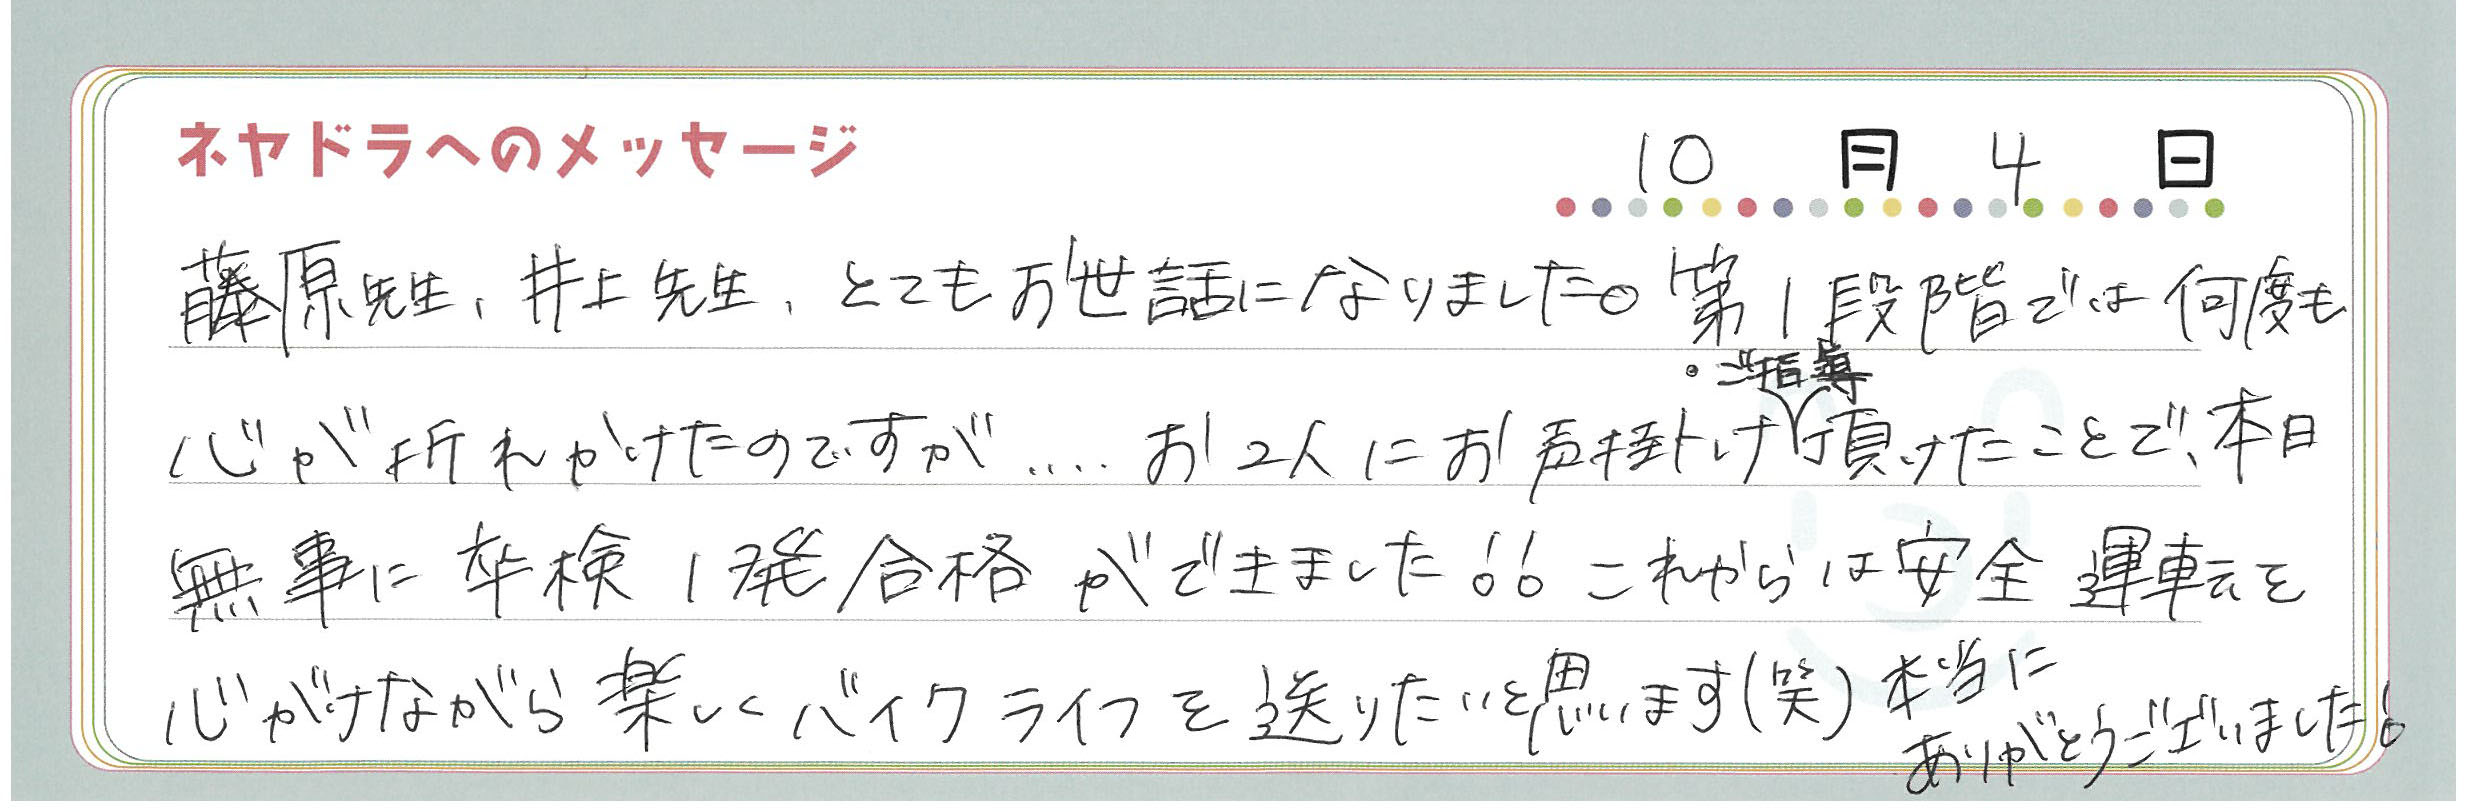 ネヤドラへのメッセージ
10月4日
藤原先生、井上先生、とてもお世話になりました。第1段階では何度も
心が折れかけたのですが....お2人にお声掛け・ご指導頂けたことで、本日
無事に卒検1発合格ができました!!これからは安全運転を
心がけながら楽しくバイクライフを送りたいと思います(笑)本当に
ありがとうございました!